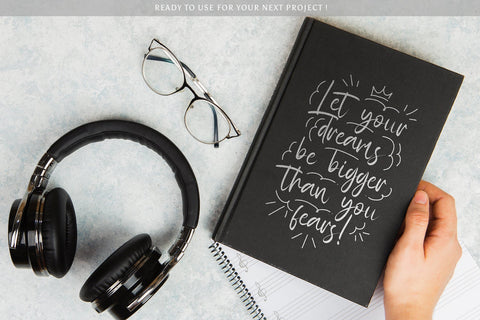 READY TO USE FOR YOUR NEXT PROJECT !
Let your
dreams
be bigger
Than you
fears!